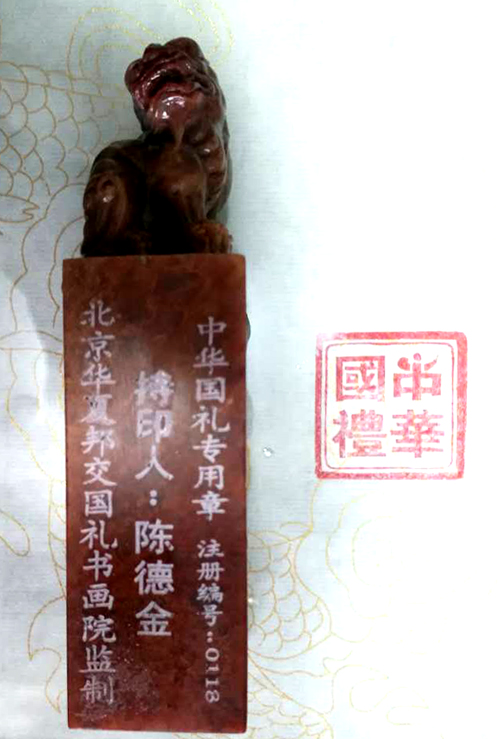 中华国礼专用章 注册编号：0118
持印人：陈德金
北京华夏邦交国礼书画院监制
中華
國禮